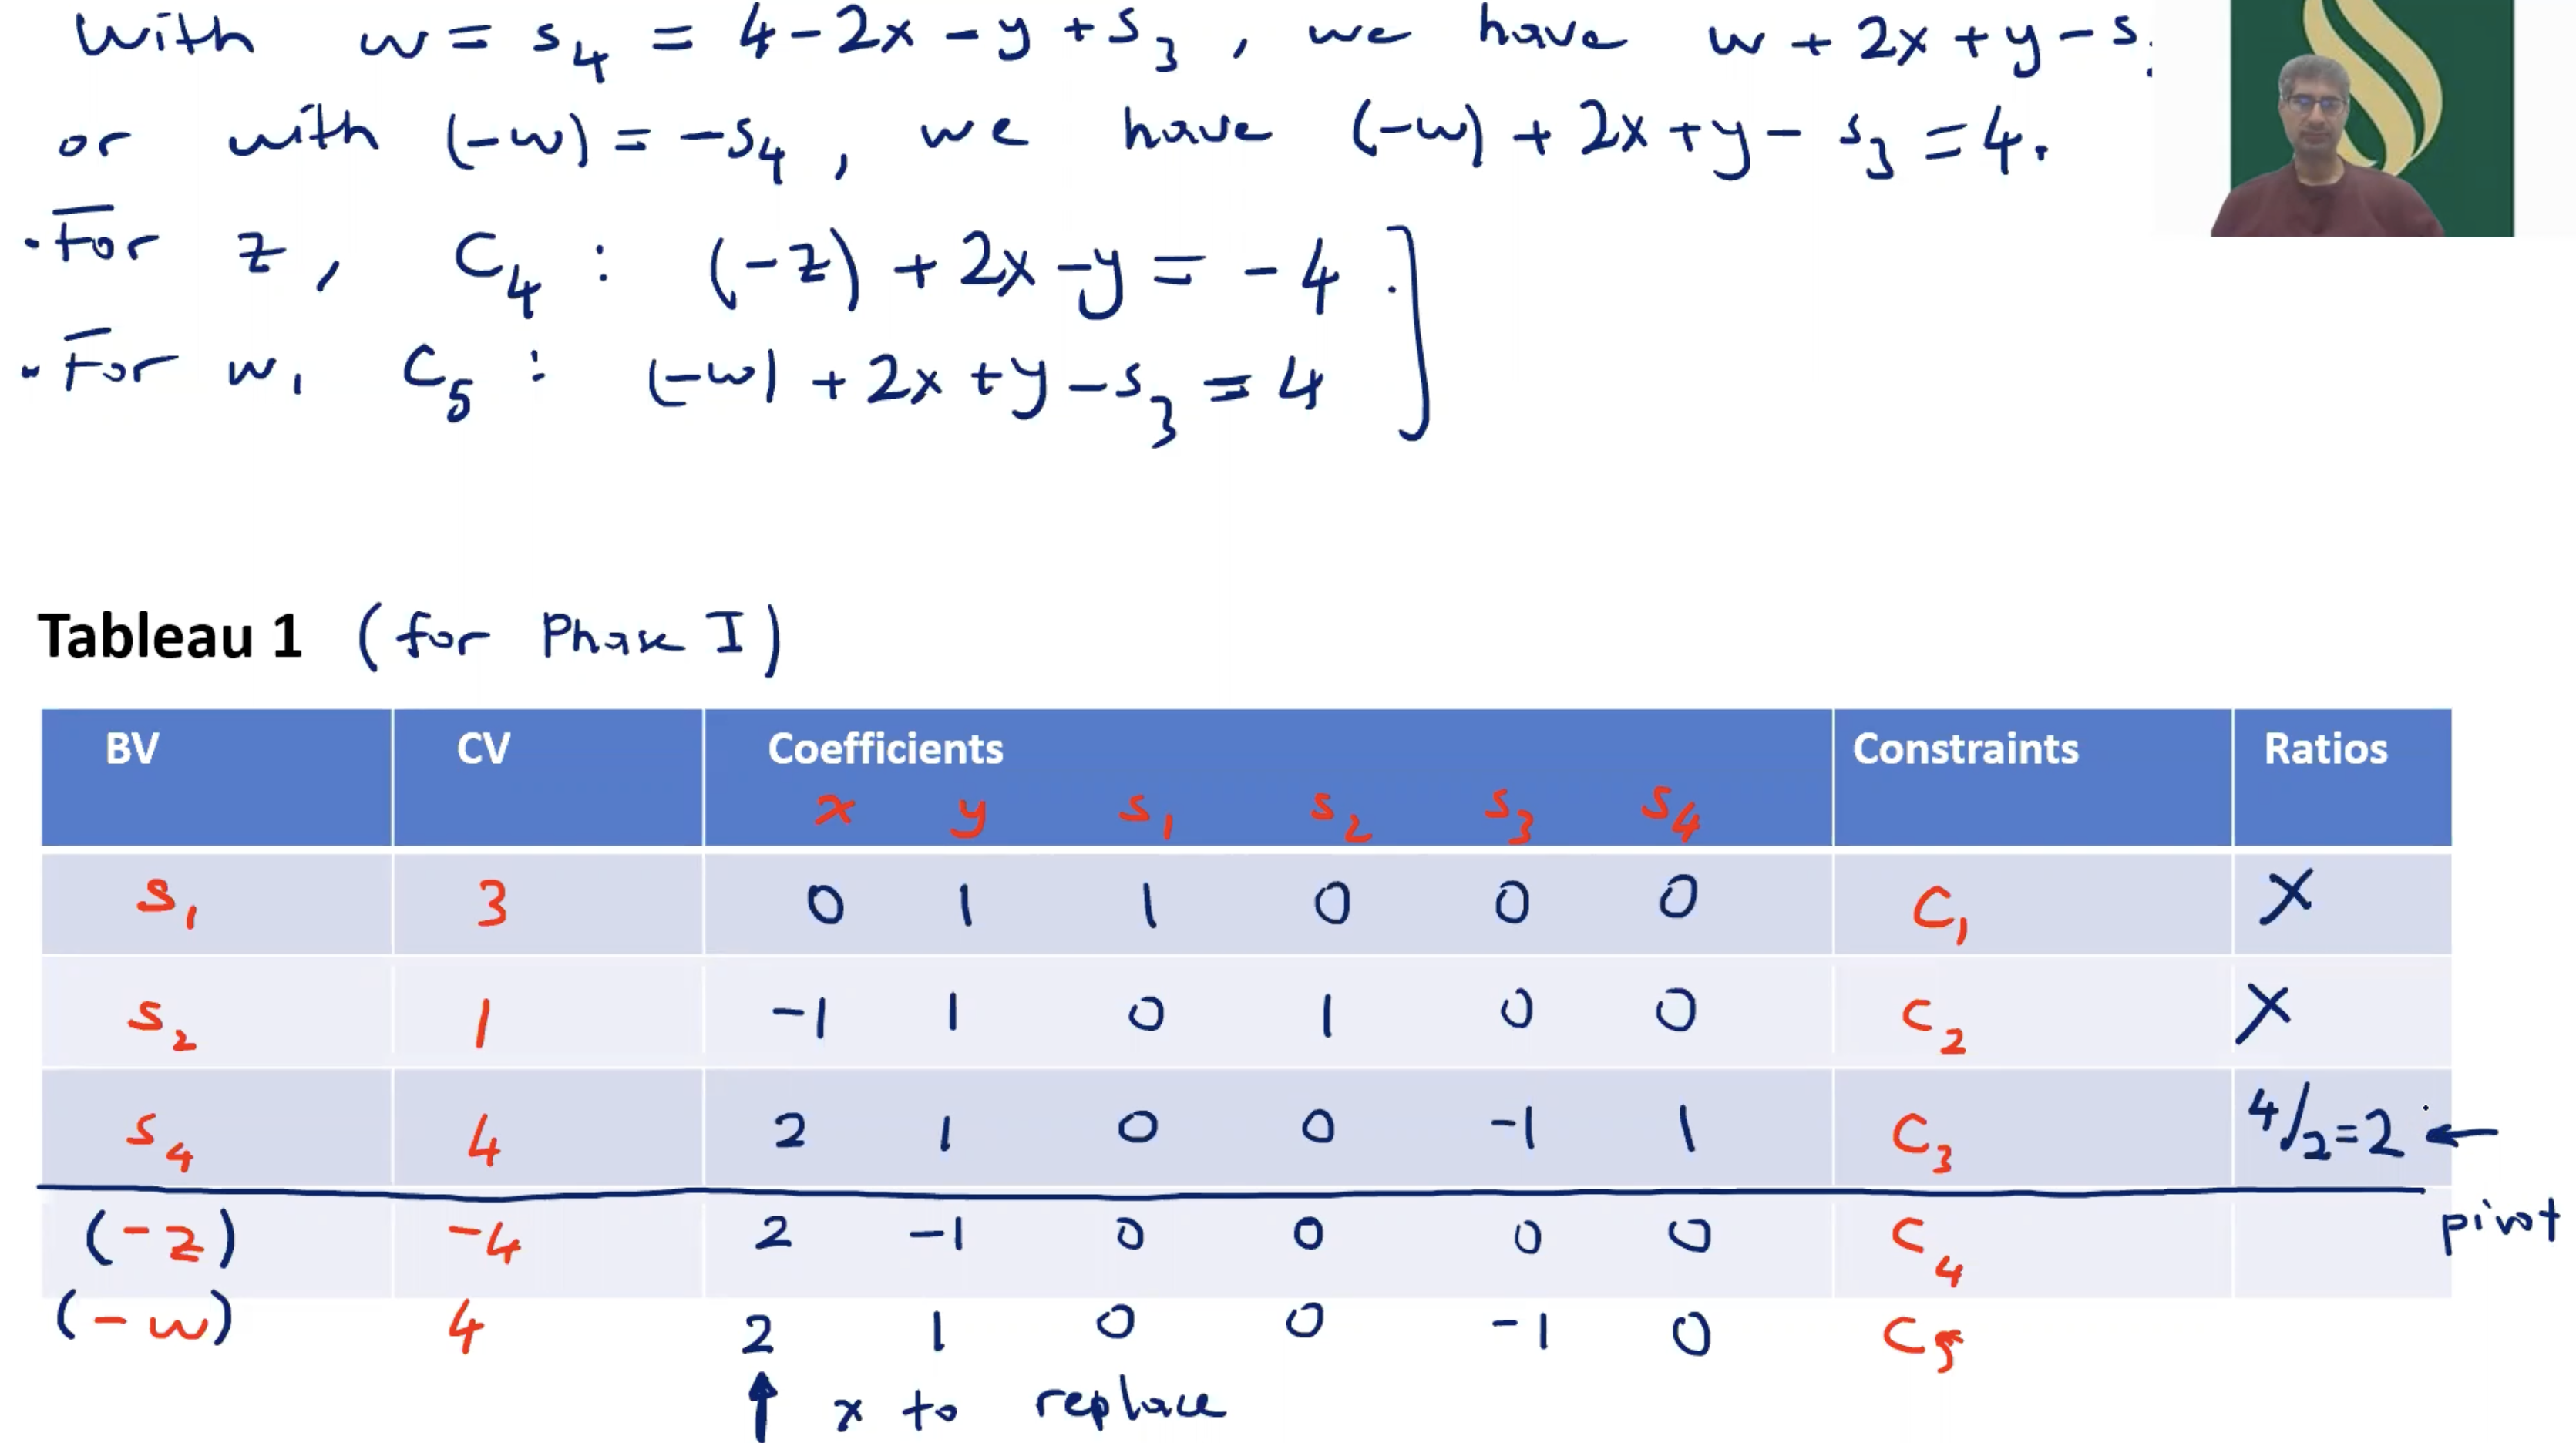 With w = s₄ = 4 - 2x - y + s₃ , we have w + 2x + y - s
or with (-w) = -s₄ , we have (-w) + 2x + y - s₃ = 4.
· For z , C₄ : (-z) + 2x - y = -4 .
· For w, C₅ : (-w) + 2x + y - s₃ = 4
Tableau 1 (for Phase I)
BV CV Coefficients Constraints Ratios
x y s₁ s₂ s₃ s₄
s₁ 3 0 1 1 0 0 0 C₁ X
s₂ 1 -1 1 0 1 0 0 C₂ X
s₄ 4 2 1 0 0 -1 1 C₃ 4/2 = 2 ←
(-z) -4 2 -1 0 0 0 0 C₄ pivot
(-w) 4 2 1 0 0 -1 0 C₅
↑ x to replace